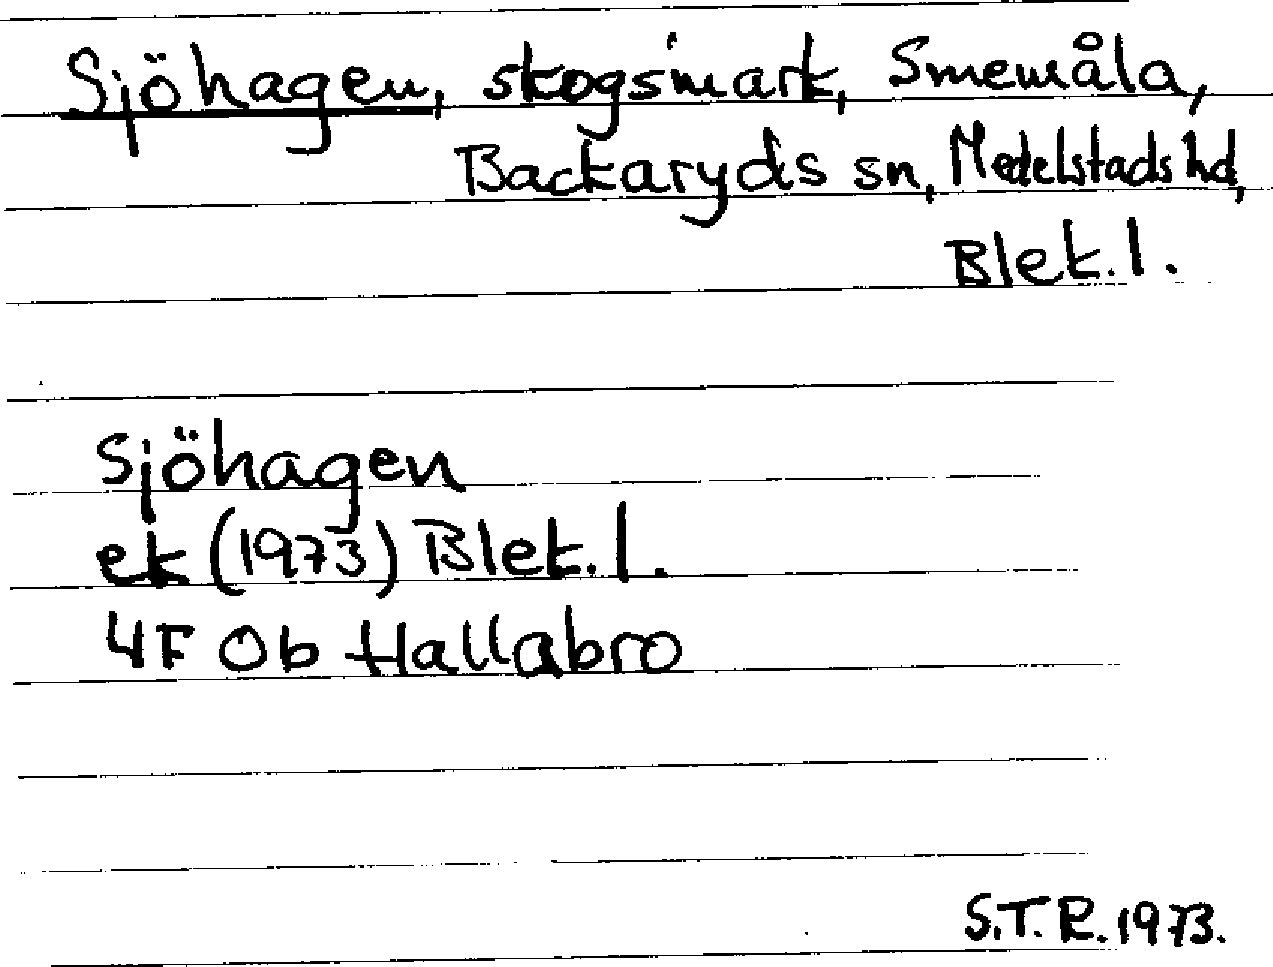 Sjöhagen, skogsmark, Smemåla,
Backaryds sn, Medelstads hd,
Blek. l.
Sjöhagen
ek (1973) Blek. l.
4F 0b Hallabro
S.T.R. 1973.